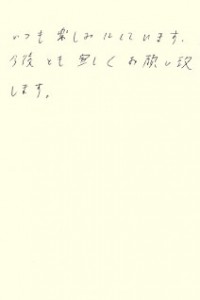 いつも楽しみにしています。
今後とも宜しくお願い致
します。